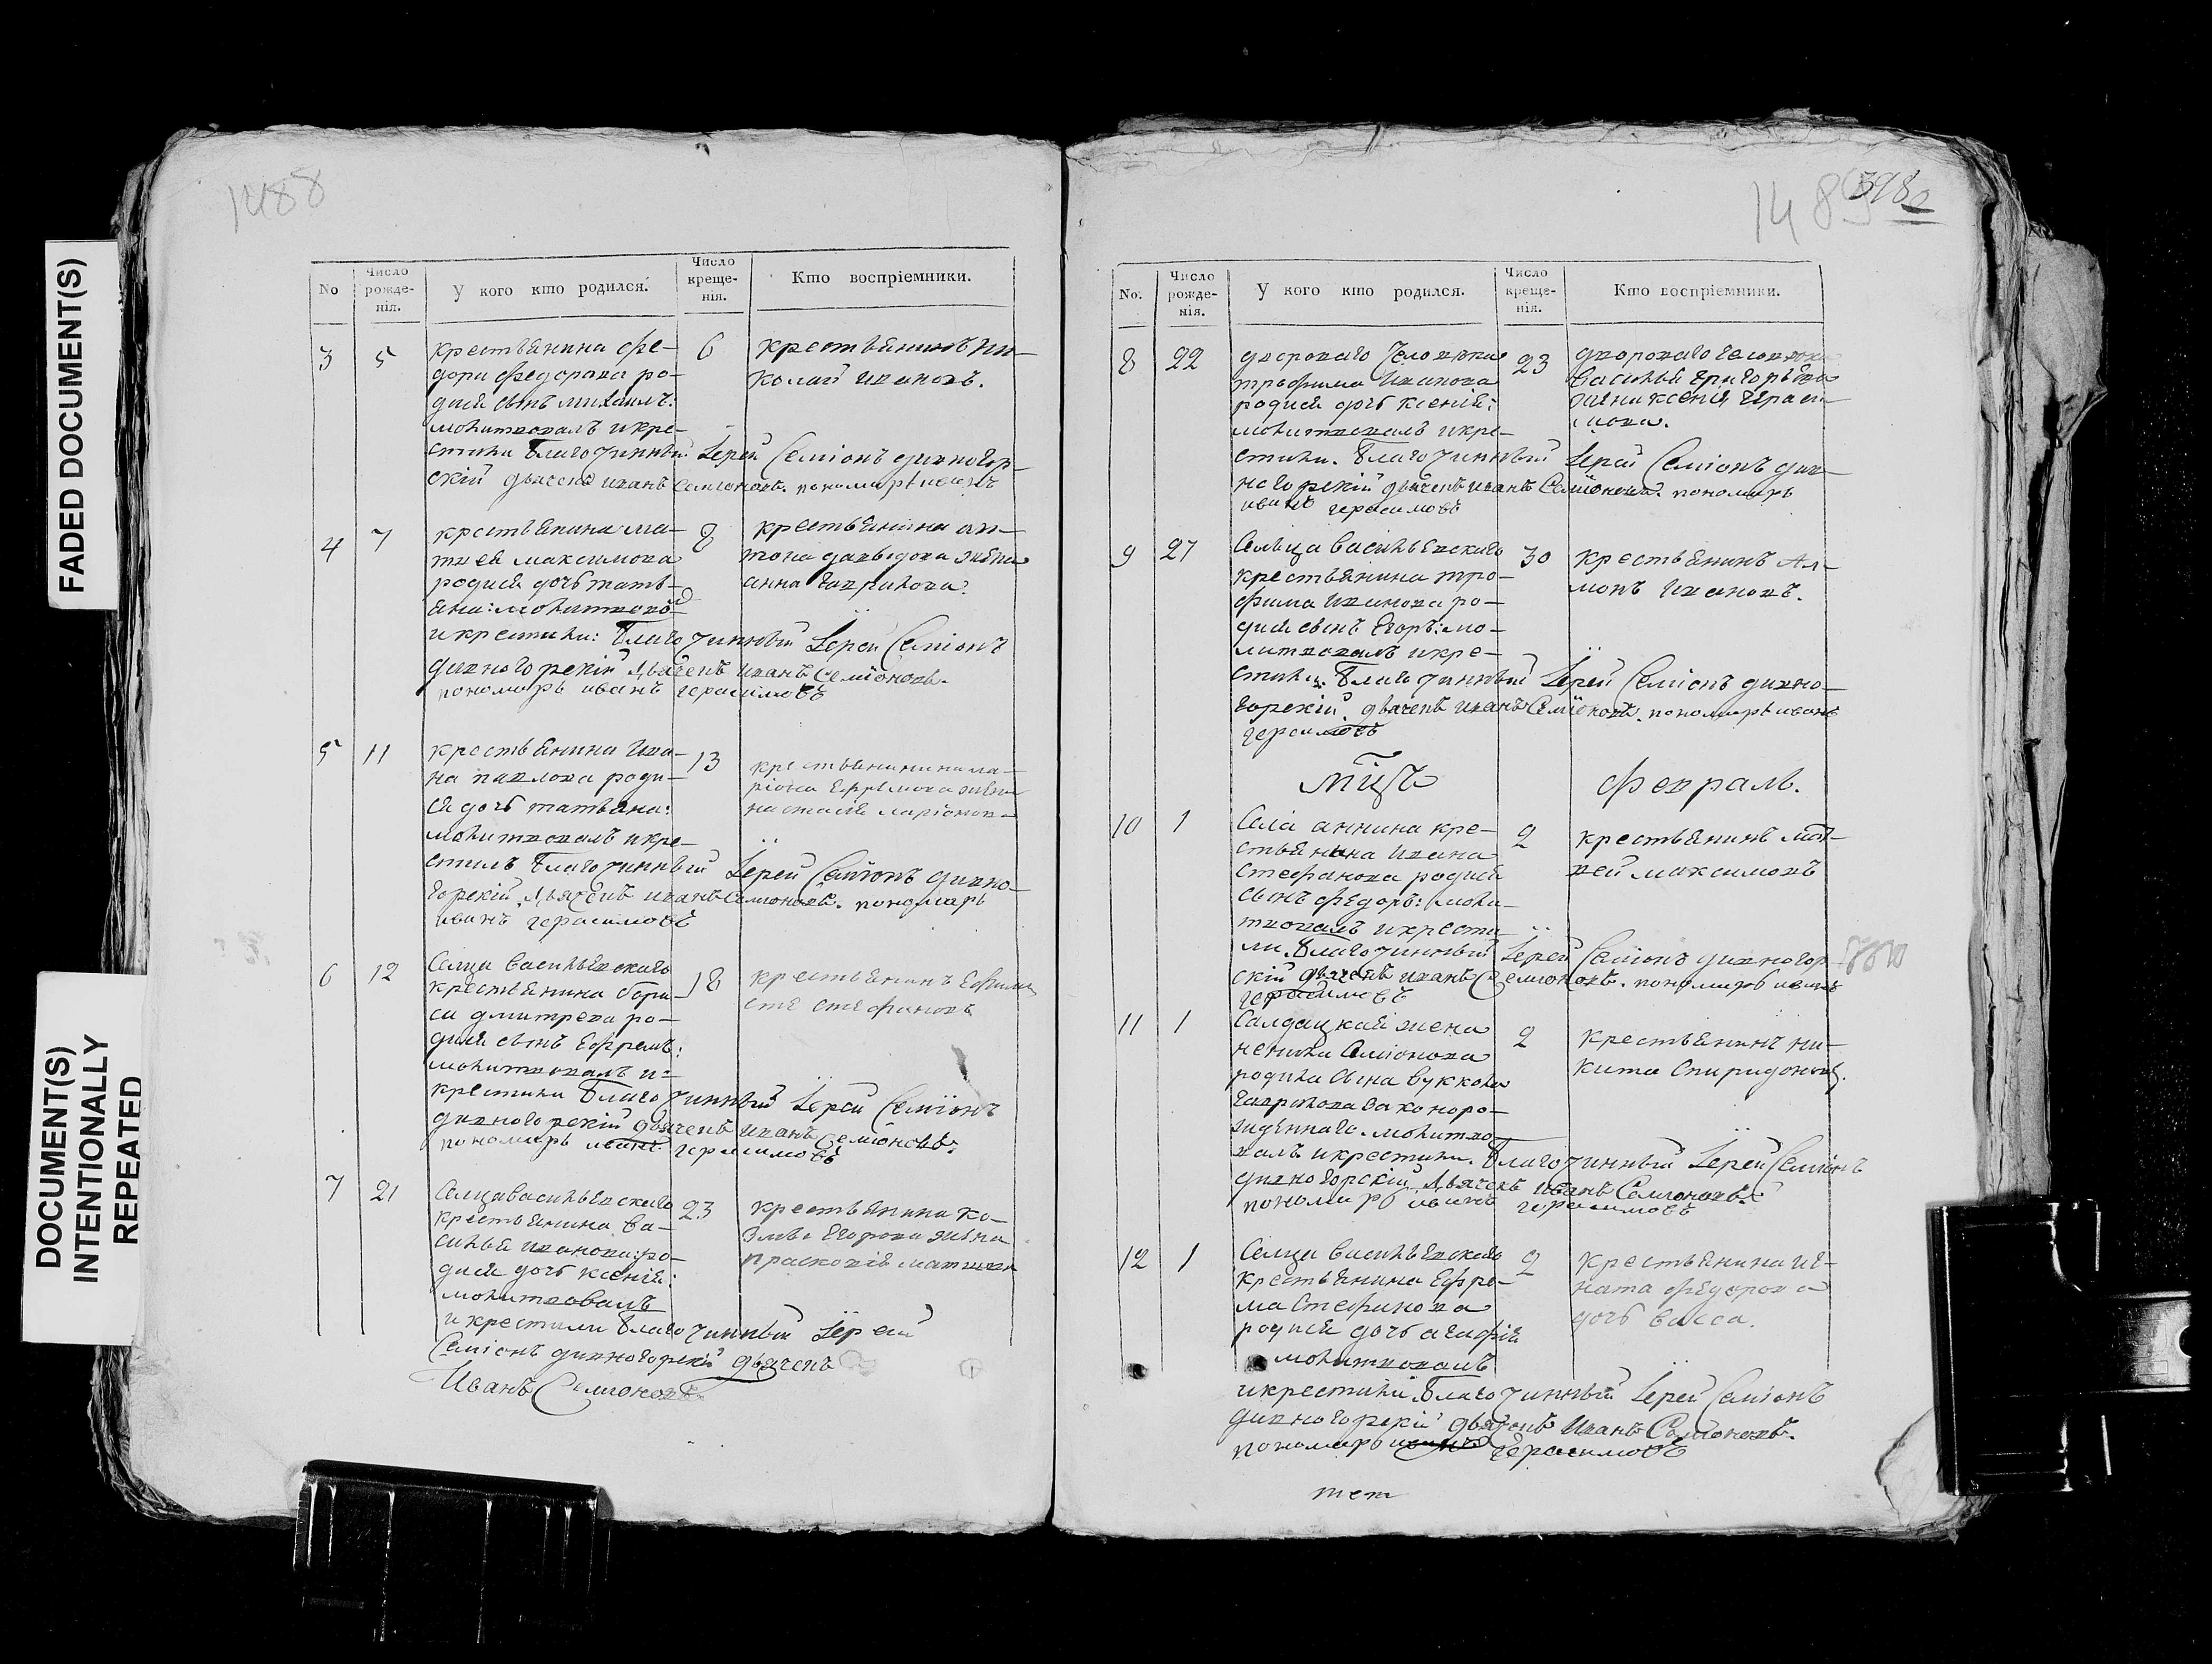 FADED DOCUMENT(S)
DOCUMENT(S)
INTENTIONALLY
REPEATED
1488
No
Число рожденія.
У кого кто родился.
Число крещенія.
Кто воспріемники.
3
5
крестьянина Фе-
дора Федорова ро-
дися сынъ михаилъ:
молитвовалъ и кре-
стили Благочинный Іерей Семіонъ дивногор-
скій дьячекъ иванъ Семіоновъ. пономарь иванъ
6
крестьянинъ Ни-
колай Ивановъ.
4
7
крестьянина Ма-
твея максимова
родися дочь тать-
яна: молитвовалъ
и крестили: Благочинный Іерей Семіонъ
дивногорскій Дьячекъ иванъ Семіоновъ.
пономарь иванъ герасимовъ
8
крестьянина ан-
тона давыдова жена
анна гаврилова.
5
11
крестьянина Ива-
на павлова роди-
ся дочь татьяна:
молитвовалъ и кре-
стилъ Благочинный Іерей Семіонъ дивно-
горскій. Дьячекъ иванъ Семіоновъ. пономарь
иванъ герасимовъ
13
ріона Ефремова жена
6
12
Селца васильевскаго
крестьянина бори-
са дмитрева ро-
дися сынъ Ефремъ:
молитвовалъ и
крестили Благочинный Іерей Семіонъ
дивногорскій дьячекъ иванъ Семіоновъ.
пономарь иванъ герасимовъ
18
крестьянинъ
7
21
Селца васильевскаго
крестьянина ва-
силья иванова ро-
дися дочь ксенія:
молитвовалъ
и крестили Благочинный Іерей
Семіонъ дивногорскій дьячекъ
Иванъ Семіоновъ
23
крестьянина ко-
змы Егорова жена
прасковія
148
No.
Число рожденія.
У кого кто родился.
Число крещенія.
Кто воспріемники.
8
22
двороваго человека
трофима Иванова
родися дочь ксенія:
молитвовалъ и кре-
стили. Благочинный Іерей Семіонъ див-
ногорскій дьячекъ иванъ Семіоновъ. пономарь
иванъ герасимовъ
23
двороваго человека
василья григорьева
жена ксенія гераси-
мова.
9
27
Сельца васильевскаго
крестьянина тро-
фима иванова ро-
дися сынъ Егоръ: мо-
литвовалъ и кре-
стили. Благочинный Іерей Семіонъ дивно-
горскій. дьячекъ иванъ Семіоновъ. пономарь иванъ
герасимовъ
30
монъ Ивановъ.
мцъ
Февраль.
10
1
Села аннина кре-
стьянина ивана
стефанова родися
сынъ Федоръ: моли-
твовалъ и крести-
ли. Благочинный Іерей Семіонъ дивногор-
скій дьячекъ иванъ Семіоновъ. пономарь иванъ
герасимовъ
2
крестьянинъ мат-
вей максимовъ
11
1
Салдацкая жена
ненила Семіонова
родила сына вуккола
гаврилова законоро-
жденнаго. молитво-
валъ и крестили. Благочинный Іерей Семіонъ
дивногорскій Дьячекъ иванъ Семіоновъ.
пономарь иванъ герасимовъ
2
крестьянинъ ни-
кита Спиридоновъ.
12
1
Селца васильевскаго
крестьянина Ефре-
ма Стефанова
родися дочь агафія
молитвовалъ
и крестили Благочинный Іерей Семіонъ
дивногорскій дьячекъ Иванъ Семіоновъ.
пономарь иванъ герасимовъ
2
крестьянина иг-
ната Федорова
дочь васса.